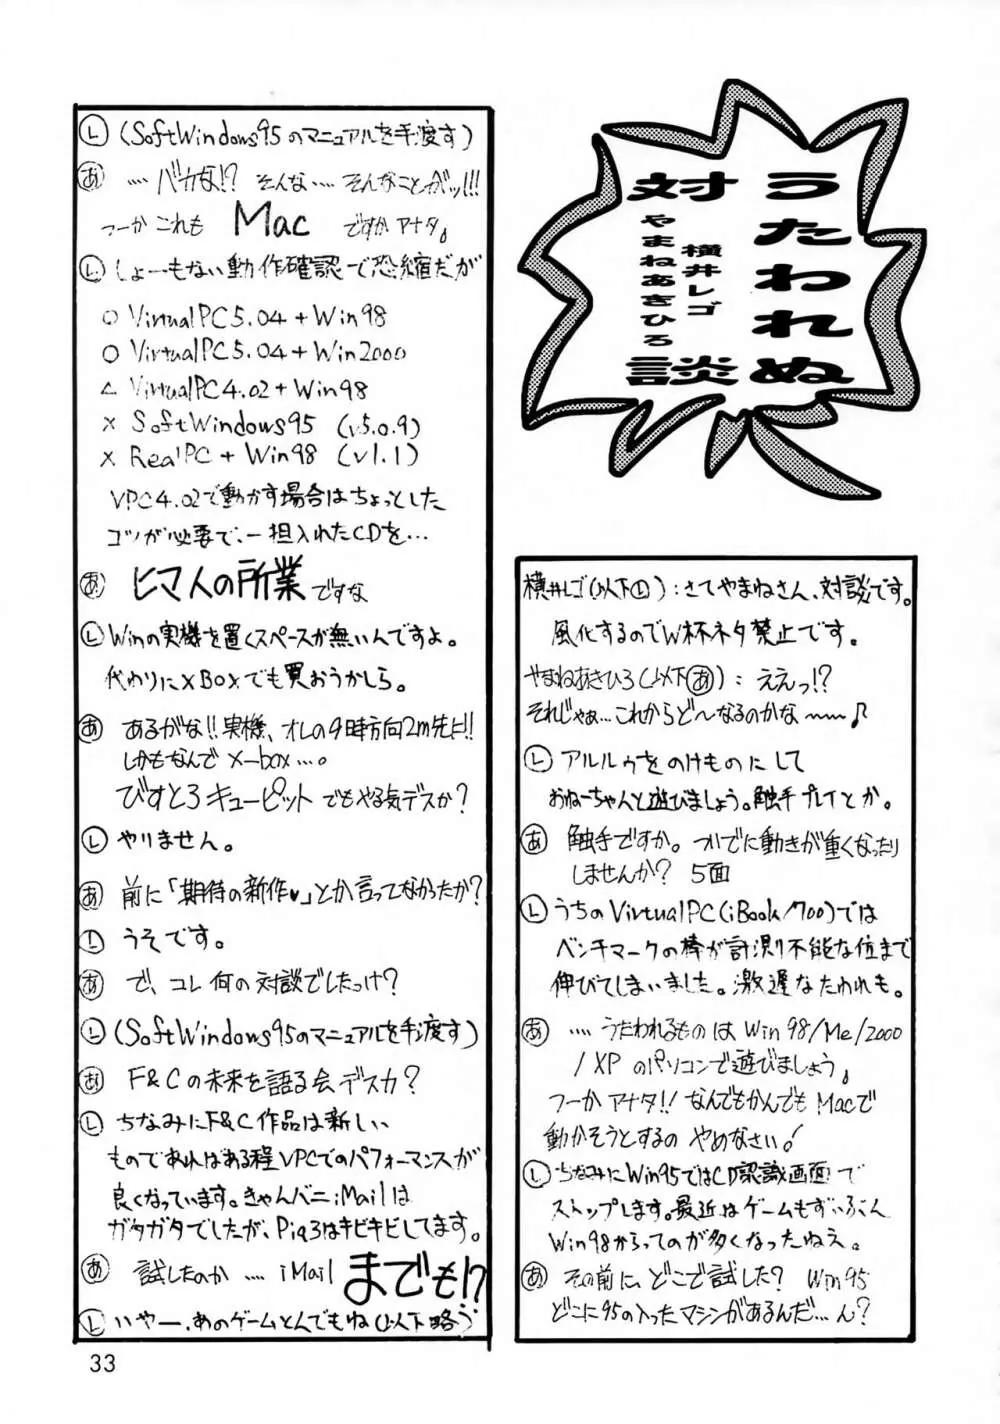 うたわれぬ
対談
横井レゴ
やまねあきひろ
横井レゴ(以下Ⓛ):さてやまねさん、対談です。
風化するのでW杯ネタ禁止です。
やまねあきひろ(以下あ):ええっ!?
それじゃぁ…これからど〜なるのかな〜〜〜♪
Ⓛ アルルゥをのけものにして
おねーちゃんと遊びましょう。触手プレイとか。
あ 触手ですか。ついでに動きが重くなったり
しませんか? 5面
Ⓛ うちのVirtualPC(iBook/700)では
ベンチマークの棒が計測不能な位まで
伸びてしまいました。激遅なたわれも。
あ ‥‥うたわれるものは Win98/Me/2000
/XP のパソコンで遊びましょう。
つーかアナタ!!なんでもかんでもMacで
動かそうとするの やめなさい!
Ⓛ ちなみにWin95ではCD認識画面で
ストップします。最近はゲームもずいぶん
Win98からってのが多くなったねえ。
あ その前に、どこで試した? Win95
どこに95の入ったマシンがあるんだ…ん?
Ⓛ (SoftWindows95のマニュアルを手渡す)
あ ‥‥バカな!? そんな‥‥そんなことがッ!!!
つーか これも Mac ですか アナタ。
Ⓛ しょーもない動作確認で恐縮だが
○ VirtualPC5.04+Win98
○ VirtualPC5.04+Win2000
△ VirtualPC4.02+Win98
× SoftWindows95 (v5.0.9)
× RealPC+Win98 (v1.1)
VPC4.02で動かす場合はちょっとした
コツが必要で、一担入れたCDを…
あ ヒマ人の所業ですな
Ⓛ Winの実機を置くスペースが無いんですよ。
代わりにXBoxでも買おうかしら。
あ あるがな!!実機、オレの9時方向2m先に!!
しかもなんで X-box…。
びすとろキューピット でもやる気デスか?
Ⓛ やりません。
あ 前に「期待の新作♥」とか言ってなかったか?
Ⓛ うそです。
あ で、コレ何の対談でしたっけ?
Ⓛ (SoftWindows95のマニュアルを手渡す)
あ F&Cの未来を語る会デスカ?
Ⓛ ちなみにF&C作品は新しい
ものであればある程VPCでのパフォーマンスが
良くなっています。きゃんバニiMailは
ガタガタでしたが、Pia3はキビキビしてます。
あ 試したのか ‥‥ iMail までも!?
Ⓛ いやー、あのゲームとんでもね(以下略)
33